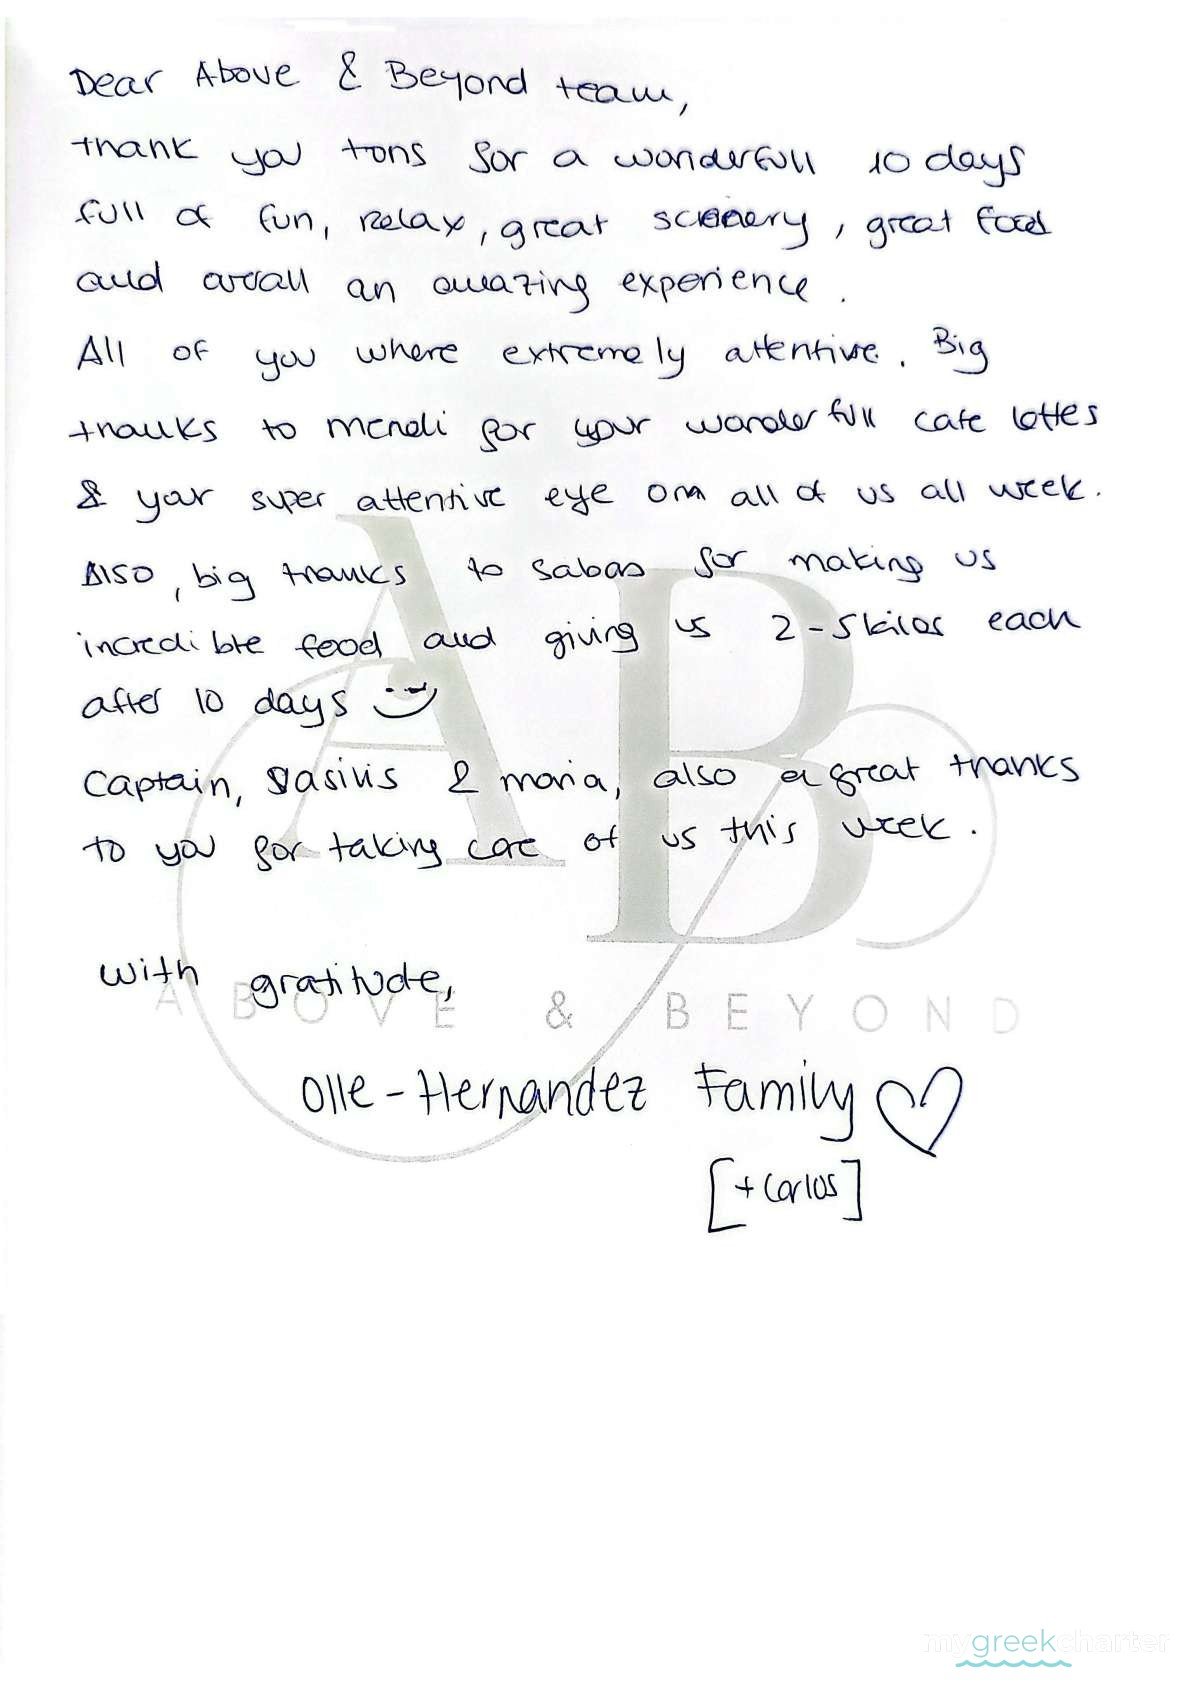 Dear Above & Beyond team,
thank you tons for a wonderfull 10 days
full of fun, relax, great scenery, great food
and overall an amazing experience.
All of you where extremely attentive. Big
thanks to Mendi for your wonderfull cafe lattes
& your super attentive eye on all of us all week.
Also, big thanks to Sabas for making us
incredible food and giving us 2-5 kilos each
after 10 days
Captain, Vasilis & Maria, also a great thanks
to you for taking care of us this week.
With gratitude,
ABOVE & BEYOND
Olle-Hernandez Family
[+ Carlos]
AB
mygreekcharter